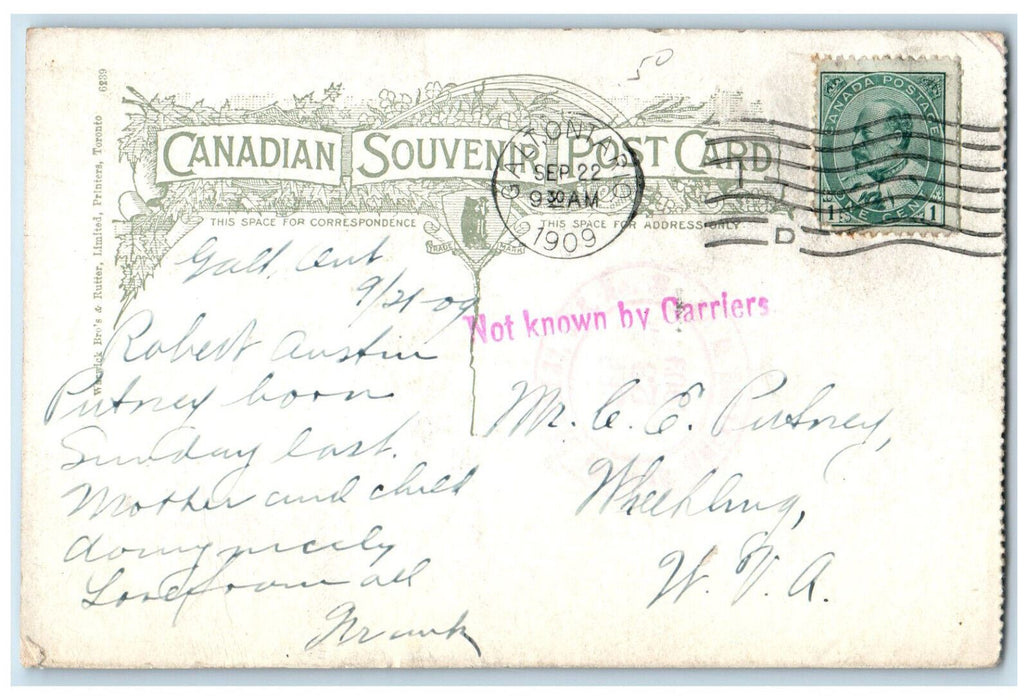 50
CANADIAN SOUVENIR POST CARD
GALT ONTARIO
SEP 22
9 30 AM
1909
D
CANADA POSTAGE
1 ONE CENT 1
THIS SPACE FOR CORRESPONDENCE
THIS SPACE FOR ADDRESS ONLY
TRADE MARK
Warwick Bro's & Rutter, Limited, Printers, Toronto 6239
Galt, Ont
9/21-09
Robert Austin
Putney born
Sunday last.
Mother and child
doing nicely
Love from all
Frank
Not known by Carriers
Mr. C. E. Putney,
Wheehling,
W. V. A.